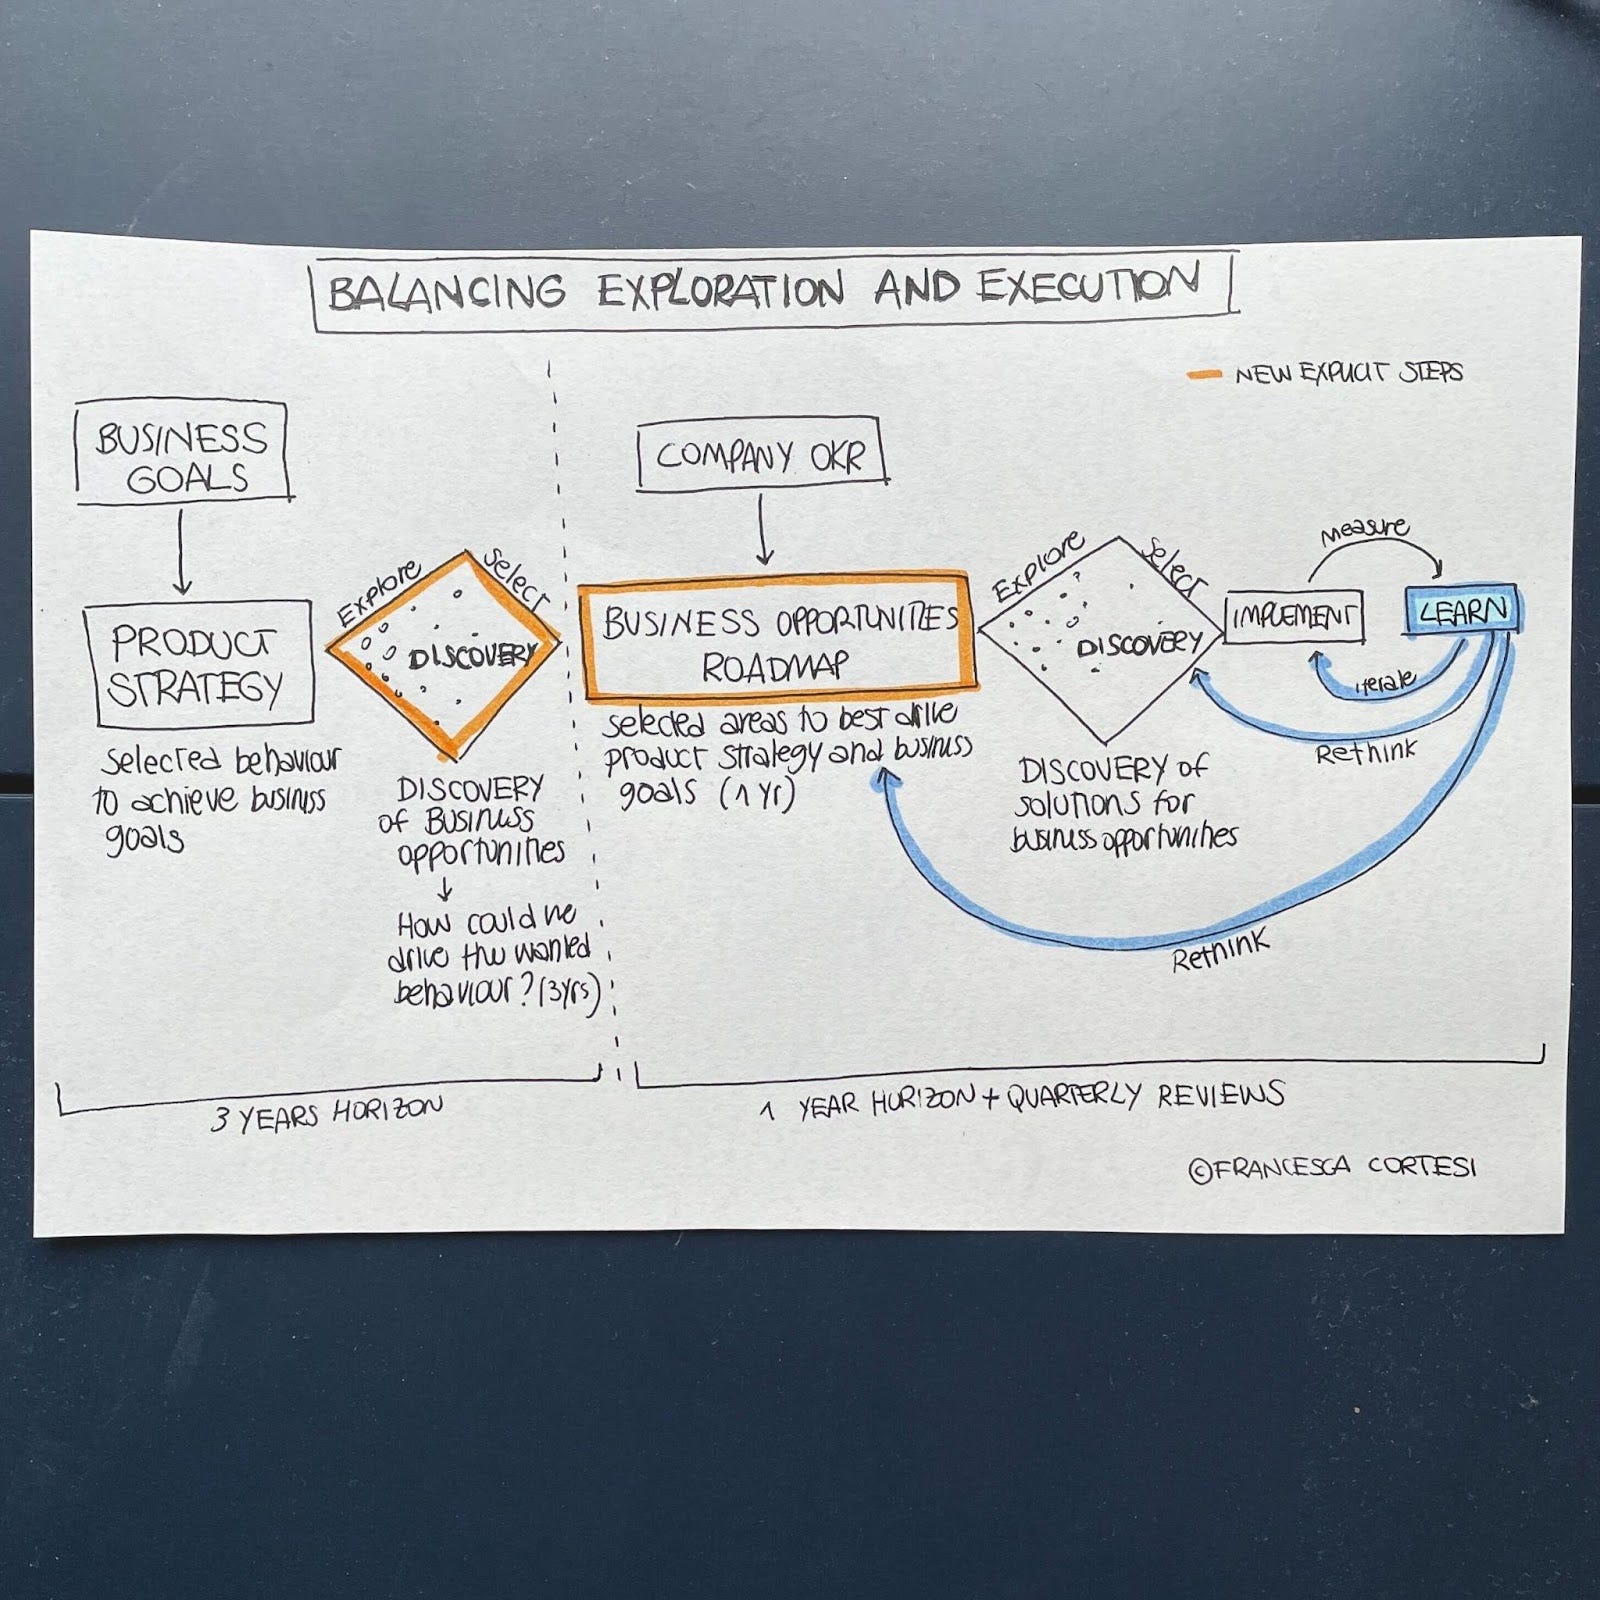 BALANCING EXPLORATION AND EXECUTION
NEW EXPLICIT STEPS
BUSINESS
GOALS
PRODUCT
STRATEGY
Selected behaviour
to achieve business
goals
Explore
Select
DISCOVERY
DISCOVERY
of BUSINESS
opportunities
How could we
drive the wanted
behaviour? (3yrs)
3 YEARS HORIZON
COMPANY OKR
BUSINESS OPPORTUNITIES
ROADMAP
Selected areas to best drive
product strategy and business
goals (1 yr)
Explore
Select
DISCOVERY
DISCOVERY of
solutions for
business opportunities
IMPLEMENT
Measure
LEARN
iterate
Rethink
Rethink
1 YEAR HORIZON + QUARTERLY REVIEWS
©FRANCESCA CORTESI